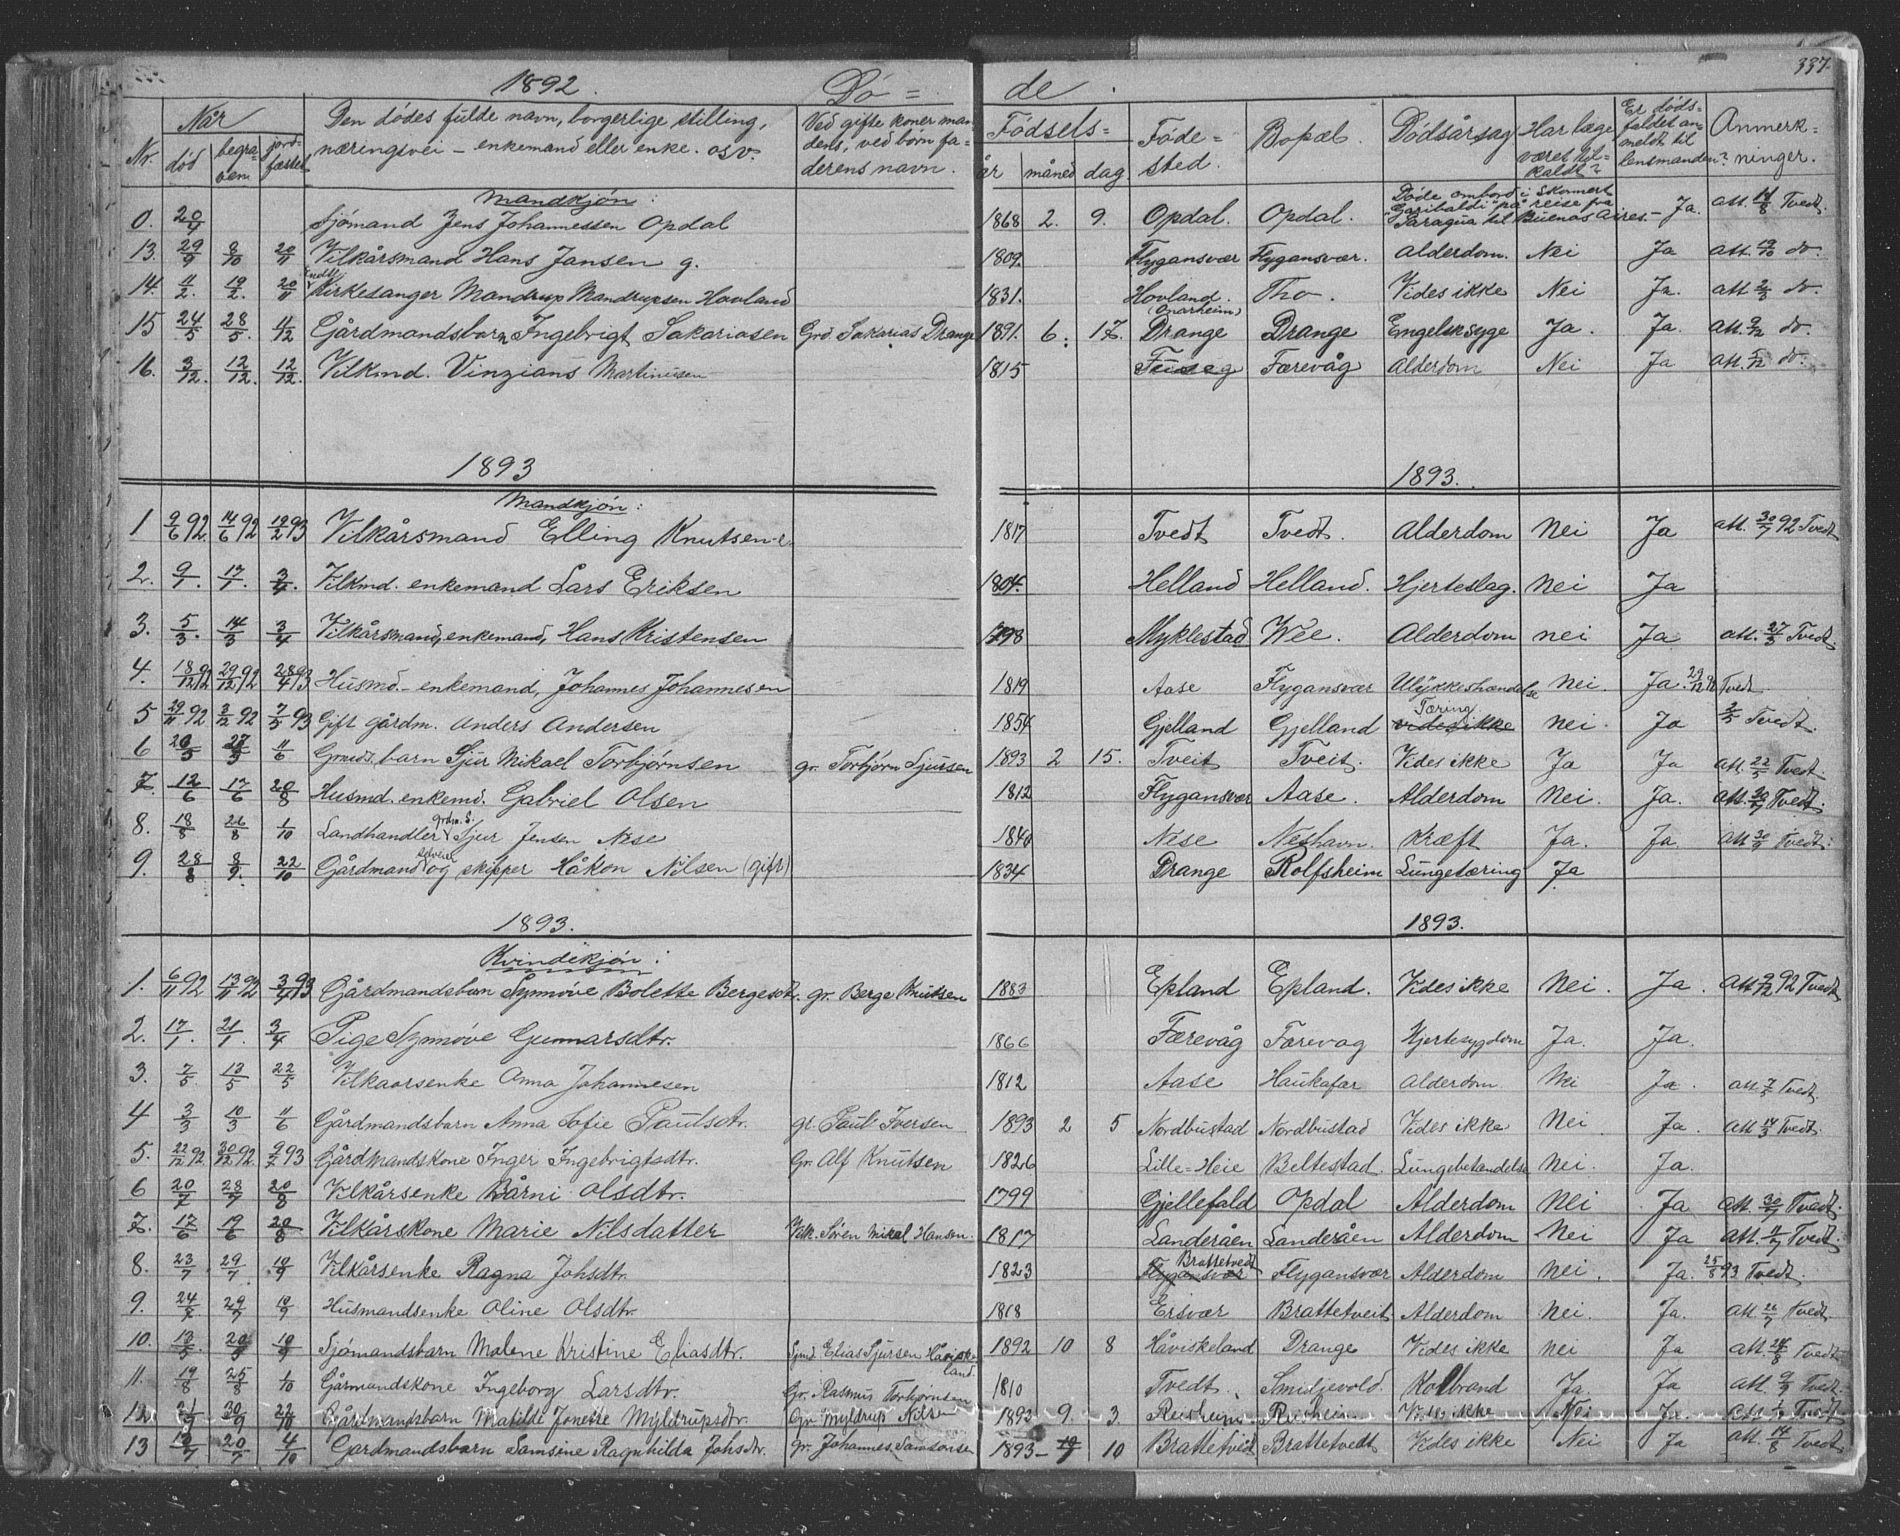 337.
1892. Dö = de.
Nr. Når död begraven jordfæstet Den dödes fulde navn, borgerlige stilling, næringsvei – enkemand eller enke. osv. Ved gifte koner mandens, ved börn faderens navn. Födsels= år måned dag Föde=sted. Bopæl. Dödsårsag Har læge været til=kaldt? Er döds=faldet anmeldt til lensmanden? Anmerk=ninger.
Mandkjön:
0. 20/7 Sjömand Jens Johannessen Opdal 1868 2. 9. Opdal. Opdal. Döde ombord i Skonnert "Garibaldi" på reise fra Paragua til Buenos Aires. – Ja. att. 14/8 Tvedt.
13. 29/9 8/10 20/11 Vilkårsmand Hans Jansen g. 1809. Flygansvær Flygansvær. Alderdom. Nei Ja att. do.
14. 11/2. 19/2. 20/11 Kirkesanger Mandrup Mandrupsen Hovland 1831. Hovland. (Onarheim) Tho. Vides ikke Nei Ja. att. 2/3 do.
15 24/5 28/5. 4/12 Gårdmandsbarn Ingebrigt Sakariasen Grd. Sakarias Drange 1891. 6. 17. Drange Drange Engelsksyge Ja. Ja. att. 9/12 do.
16. 3/12. 12/12. 12/12. Vilkmd. Vinzians Martinusen 1815 Færevåg Alderdom Nei Ja att. do.
1893 1893.
Mandkjön:
1 9/6 92. 14/6 92 19/2 93 Vilkårsmand Elling Knutsen 1817 Tvedt Tvedt. Alderdom Nei Ja att. 30/7 92 Tvedt
2. 9/1. 17/1. 3/4. Vilkmd. enkemand Lars Eriksen 1804. Helland Helland. Hjerteslag. Nei Ja
3. 5/3. 14/3 3/4 Vilkårsmand, enkemand, Hans Kristensen 1798 Myklestad Wee. Alderdom nei Ja att. 27/3 Tvedt.
4. 18/12 92 29/12 92 28/4 93 Husmd. – enkemand, Johannes Johannesen 1819 Aase Flygansvær Ulykkeshændelse Nei. Ja. 29/12 92 Tvedt.
5 29/11 92 3/12 92 7/5 93 Gift gårdm. Anders Andersen 1854 Gjelland Gjelland Tæring. vides ikke nei. Ja 2/5 Tvedt.
6 20/5 27/5 11/6 Grmds. barn Sjur Mikael Torbjörnsen gr. Torbjörn Sjursen 1893 2 15. Tveit Tveit. Vides ikke Ja Ja att. 22/5 Tvedt.
7. 12/6 17/6 20/8 Husmd. enkemd. Gabriel Olsen 1812 Flygansvær Aase. Alderdom Nei. Ja. att. 30/7 Tvedt.
8. 18/8 26/8 1/10 Landhandler Sjur Jensen Nese 1840 Nese Neshavn. Kræft Ja. Ja. att. 30/9 Tvedt.
9. 28/8 8/9. 22/10 Gårdmand selveier og skipper Håkon Nilsen (gift) 1834 Drange Rolfsheim Lungetæring Ja
1893. 1893.
Kvindekjön:
1. 6/11 92 13/11 92 3/4 93 Gårdmandsbarn Synnöve Bolette Bergesdtr. gr. Berge Knutsen 1883 Epland Epland. Vides ikke Nei. Ja. att. 9/12 92 Tvedt
2. 17/1. 21/1. 3/4 Pige Synnöve Gunnarsdtr. 1866 Færevåg Færevag Hjertesygdom Ja. Ja.
3. 7/5. 13/5 22/5 Vilkaarsenke Anna Johannesen 1812 Aase Haukafær Alderdom Nei Ja. att. 7/5 Tvedt.
4 3/3 10/3 11/6 Gårdmandsbarn Anna Sofie Paulsdtr. gr. Paul Iversen 1893 2 5 Nordbustad Nordbustad Vides ikke Nei Ja. att. 14/3 Tvedt.
5. 22/12 92 30/12 92 2/7 93 Gårdmandskone Inger Ingebrigtsdtr. Gr. Alf Knutsen 1826 Lille=Heie Beltestad. Lungebetændelse Nei. Ja.
6 20/7 28/7 20/8 Vilkårsenke Bårni Olsdtr. 1799 Gjellefald Opdal Alderdom Nei Ja att. 30/7 Tvedt.
7. 17/6 19/6 20/8 Vilkårskone Marie Nilsdatter Vilk. Sören Mikal Hansen. 1817 Landeråen Landeråen Alderdom Nei Ja att. 11/7 Tvedt.
8. 23/7 29/7 10/9 Vilkårsenke Ragna Johsdtr. 1823 Brattetvedt Flygansvær Flygansvær Alderdom Nei. Ja. 25/8 93 Tvedt.
9. 24/7. 29/7 10/9 Husmandsenke Oline Olsdtr. 1818 Ersvær Brattetveit Alderdom Nei. Ja. att. 26/7 Tvedt.
10. 13/5. 20/5 10/9 Sjömandsbarn Malene Kristine Eliasdtr. Sjmd. Elias Sjursen Håviskeland 1892 10 8 Håviskeland Drange Vides ikke nei Ja att. 28/8 Tvedt
11. 19/8 25/8 1/10 Gårmandskone Ingeborg Larsdtr. Gr. Rasmus Torbjörnsen 1810 Tvedt. Smidjevold. Kolbrand Ja. Ja att. 9/9 Tvedt.
12 21/9 30/9 22/10 Gårdmandsbarn Matilde Jonette Myldrupsdtr. Gr. Myldrup Nilsen 1892 9. 3. Reisheim Reisheim. Vides ikke Nei Ja. att. Tvedt
13 12/7 20/7 4/10 Gardmandsbarn Samsine Ragnhilda Johsdtr. gr. Johannes Samsonsen 1893 – 10 Brattetvedt Brattetvedt Vides ikke Nei Ja att. 14/8 Tvedt